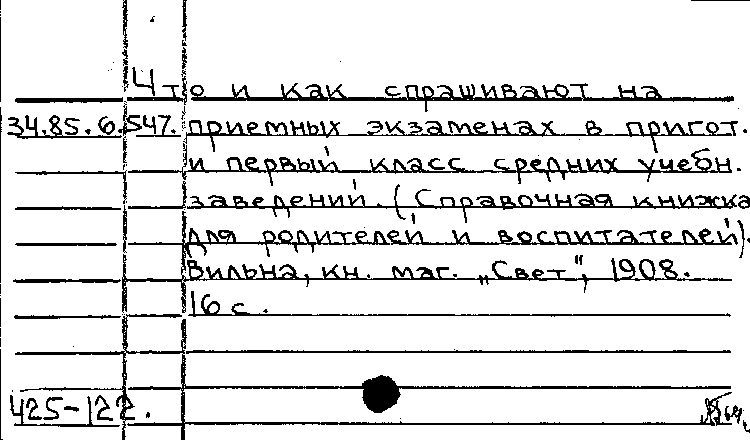 Что и как спрашивают на
34.85.6.547. приемных экзаменах в пригот.
и первый класс средних учебн.
заведений. (Справочная книжка
для родителей и воспитателей).
Вильна, кн. маг. „Свет", 1908.
16 с.
425-122.